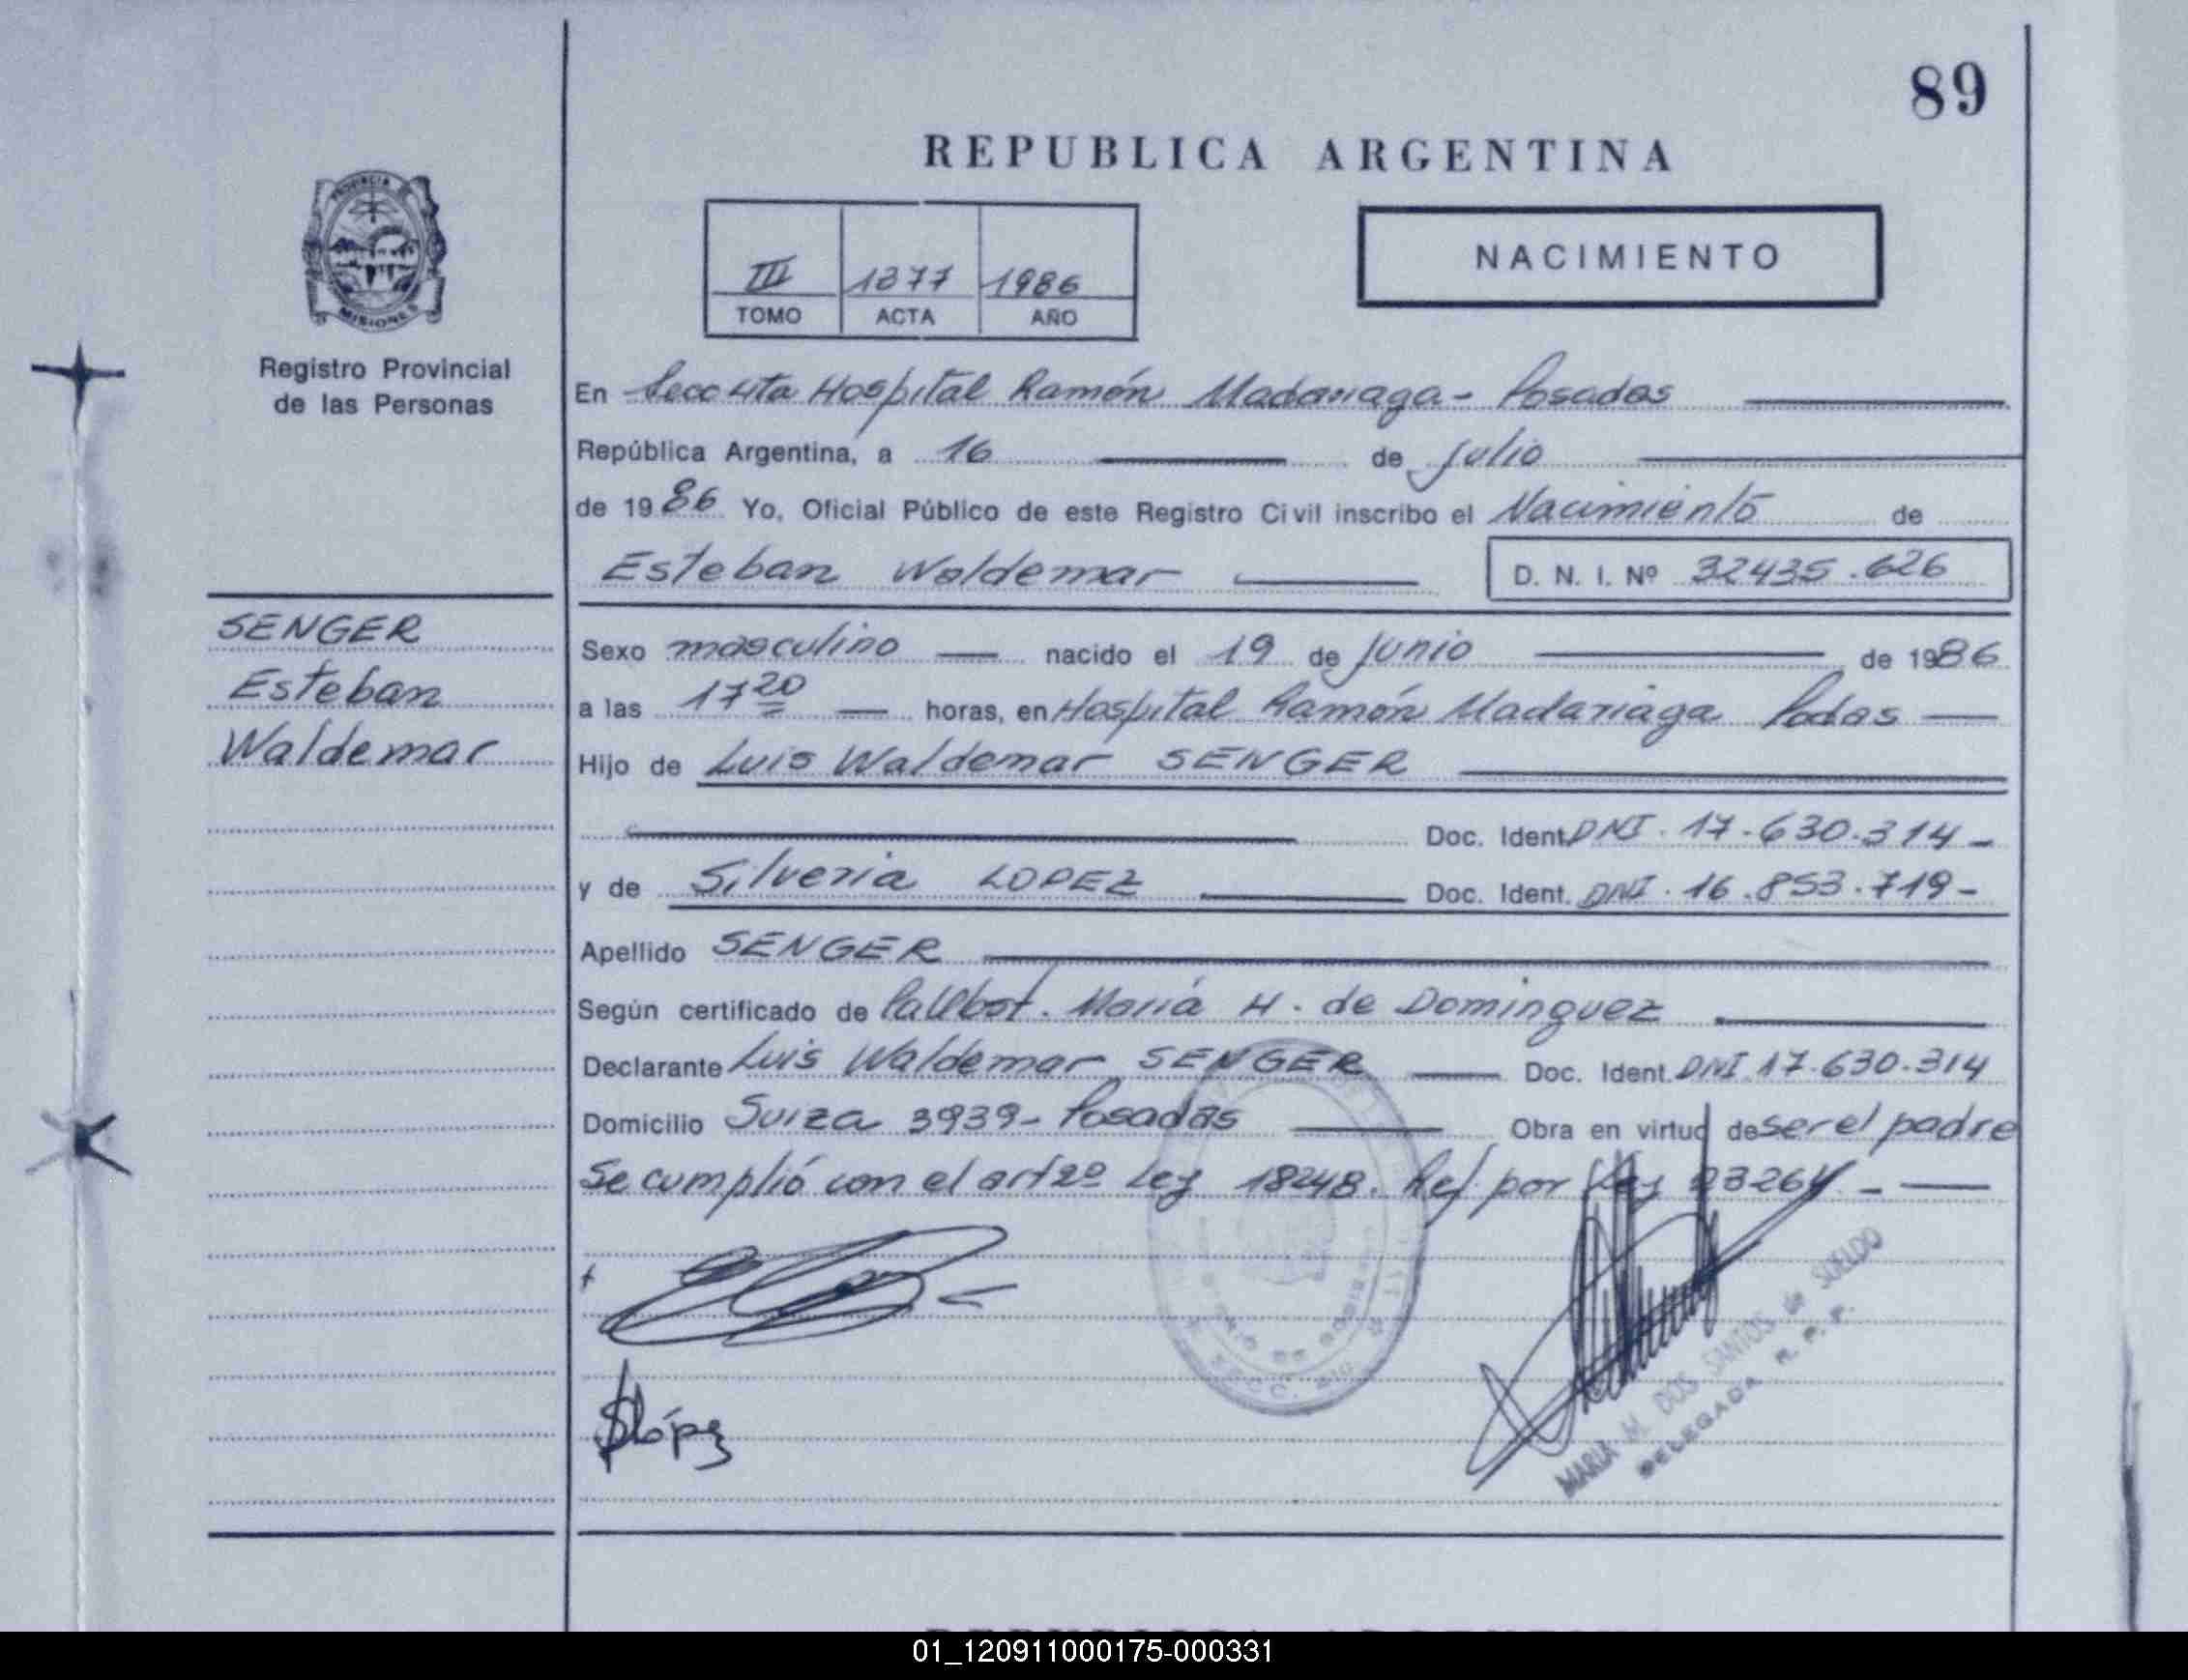 89
REPUBLICA ARGENTINA
PROVINCIA DE
MISIONES
Registro Provincial
de las Personas
III 1377 1986
TOMO ACTA AÑO
NACIMIENTO
En Secc 4ta Hospital Ramón Madariaga - Posadas
República Argentina, a 16 de Julio
de 1986 Yo, Oficial Público de este Registro Civil inscribo el Nacimiento de
Esteban Waldemar D. N. I. Nº 32435.626
SENGER
Esteban
Waldemar
Sexo masculino nacido el 19 de Junio de 1986
a las 17 20 horas, en Hospital Ramón Madariaga Podas
Hijo de Luis Waldemar SENGER
Doc. Ident. DNI. 17.630.314-
y de Silveria LOPEZ Doc. Ident. DNI. 16.853.719-
Apellido SENGER
Según certificado de María H. de Dominguez
Declarante Luis Waldemar SENGER Doc. Ident. DNI. 17.630.314
Domicilio Suiza 3939- Posadas Obra en virtud de ser el padre
Se cumplió con el art 2º Ley 18248. Ref. por Ley 23264.-
SLópez
MARIA M. DOS SANTOS de SUELDO
DELEGADA R. P. P.
01_120911000175-000331